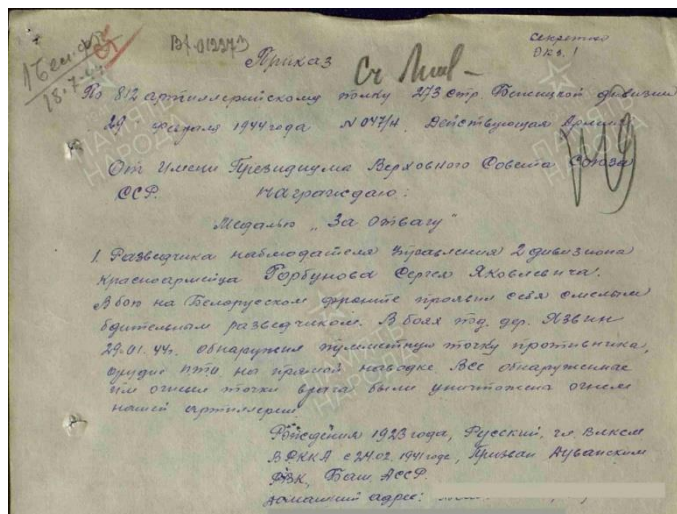 секретно
Экз. 1
Вх 012273
Приказ
18.7.44
По 812 артиллерийскому полку 273 стр Бежицкой дивизии
29 февраля 1944 года N 047/н. Действующая Армия
От Имени Президиума Верховного Совета Союза
ССР. награждаю:
Медалью „За отвагу"
1. Разведчика наблюдателя управления 2 дивизиона
красноармейца Горбунова Сергея Яковлевича.
В бою на Белорусском фронте проявил себя смелым
бдительным разведчиком. В боях под дер. Язвин
29.01.44г. обнаружил пулеметную точку противника,
орудие ПТО на прямой наводке. Все обнаруженные
им огневые точки врага были уничтожена огнем
нашей артиллерии.
Рождения 1923 года, Русский, чл. ВЛКСМ
В РККА с 24.02.1941 года, Призван Дуванским
РВК, Баш. АССР.
Домашний адрес:
ПАМЯТЬ НАРОДА